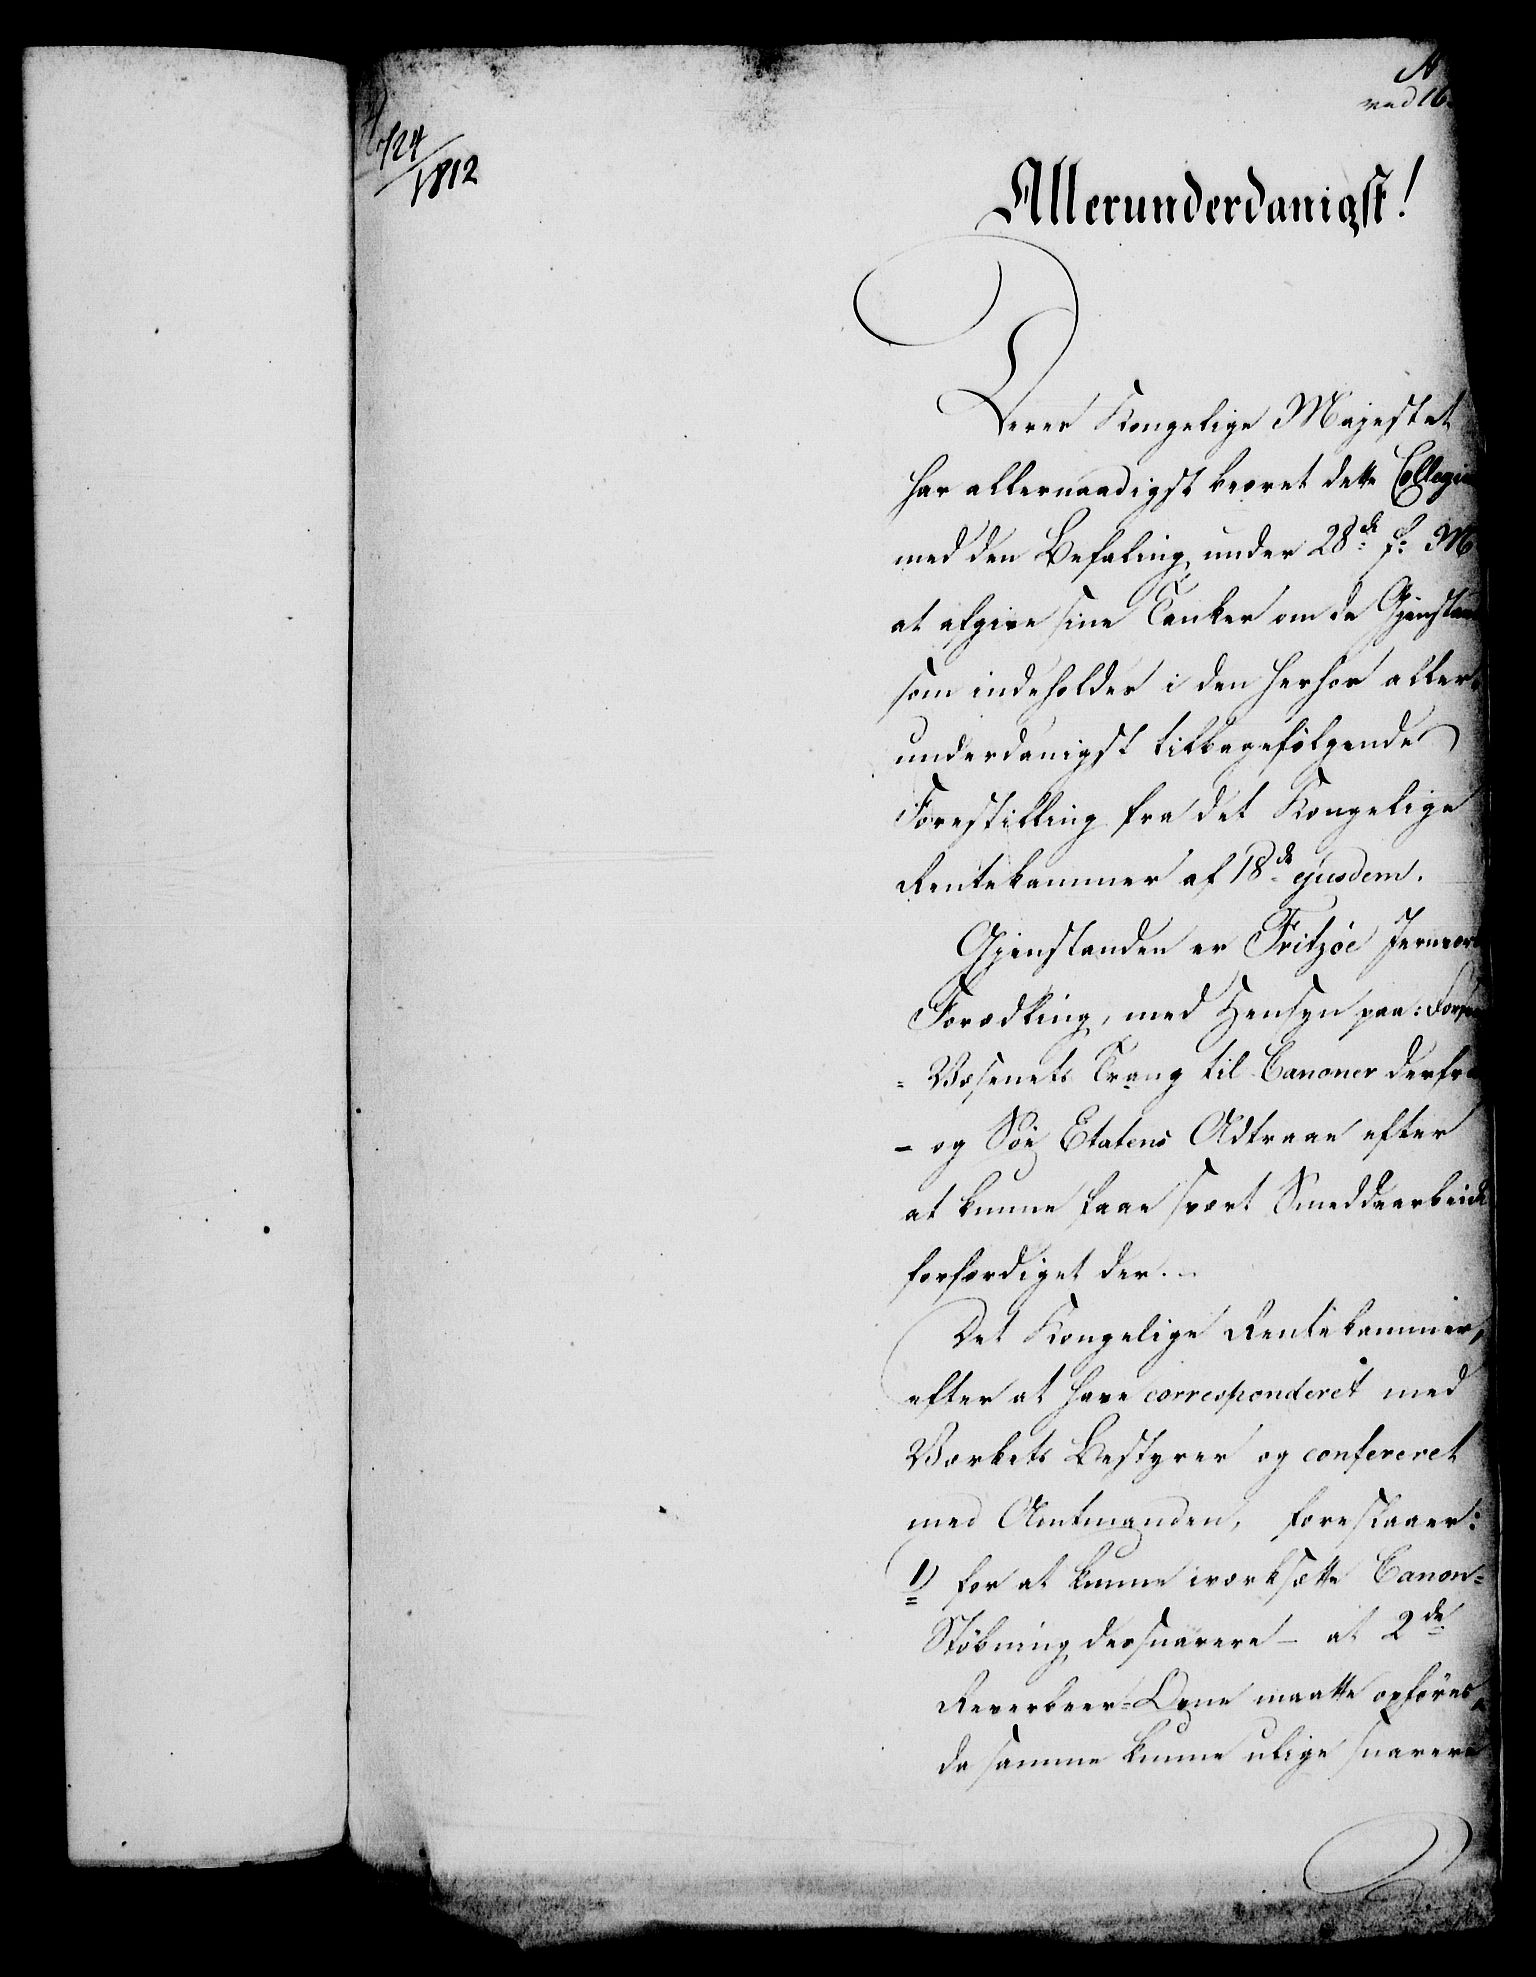 N
ved 16
724
/1812
Allerunderdanigst!
Deres Kongelige Majestet
har allernaadigst beæret dette Collegi
med den Befaling, under 28de f: M
at afgive sine Tanker om de Gjenstan
som indeholdes i den herhos aller-
underdanigst tilbagefølgende
Forestilling fra det Kongelige
Rentekammer af 18de ejusdem.
Gjenstanden er Fritzøe Jernvær
Forædling, med Hensyn paa: Forsva
= Væsenets Trang til Canoner derfra
- og Søe Etatens Attraae efter
at kunne faae svært Smeddearbeide
forfærdiget der. -
Det Kongelige Rentekammer,
efter at have corresponderet med
Værkets Bestyrer og confereret
med Amtmanden, foreslaaer:
1) for at kunne iværksætte Canon=
Støbning des snarere - at 2de
Reverbeer=Ovne maatte opføres,
da samme kunne ulige snarere